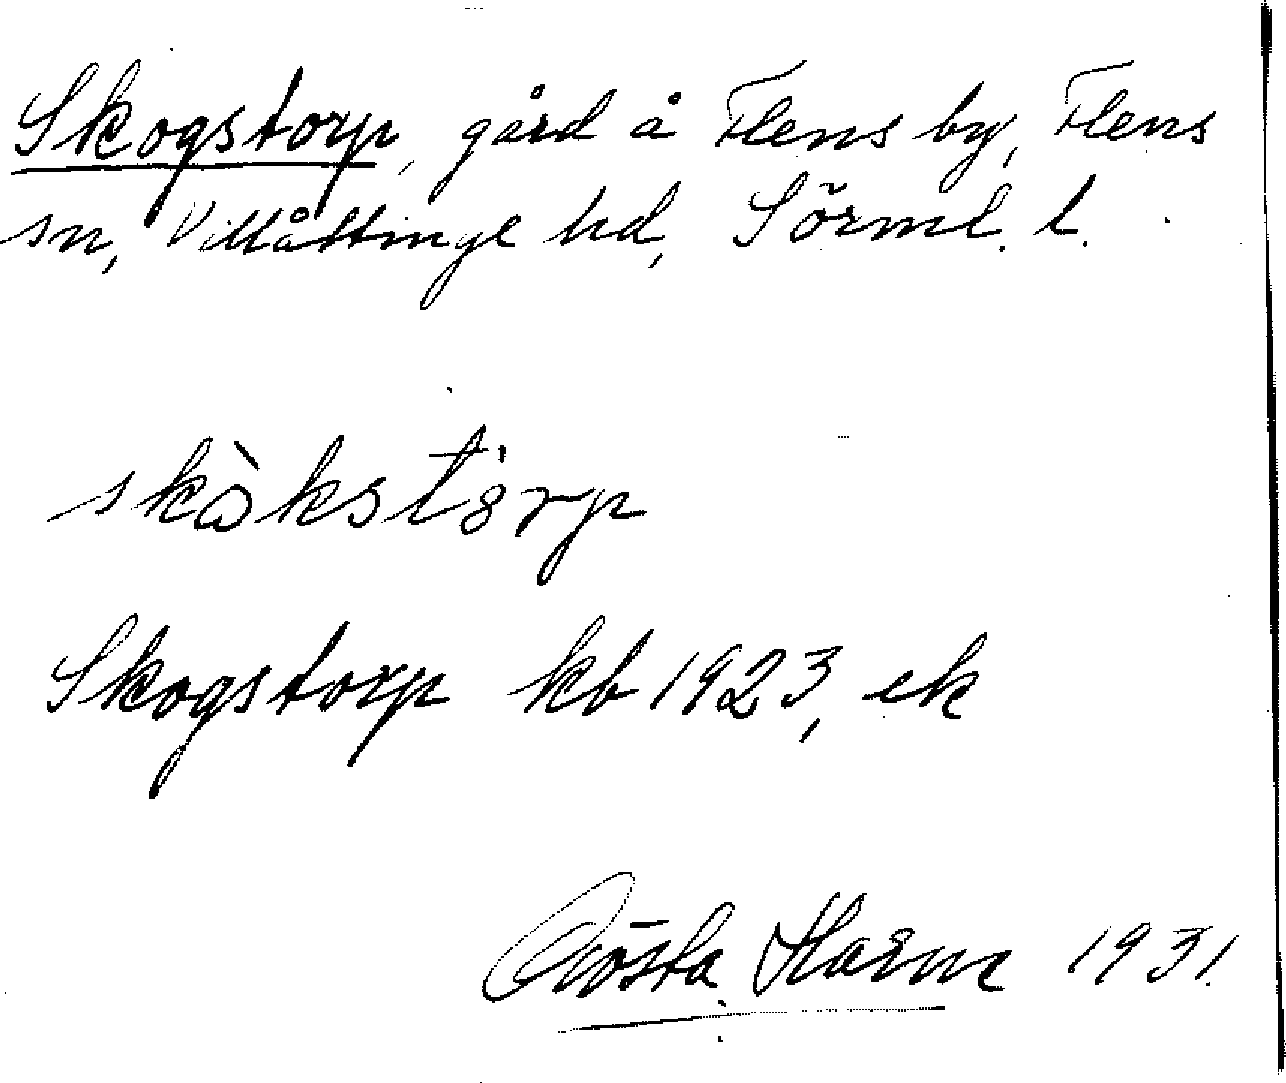 Skogstorp, gård å Flens by, Flens
sn, Villåttinge hd, Sörml. l.
skò̀kstòrp
Skogstorp kb 1923, ek
Gösta 1931.